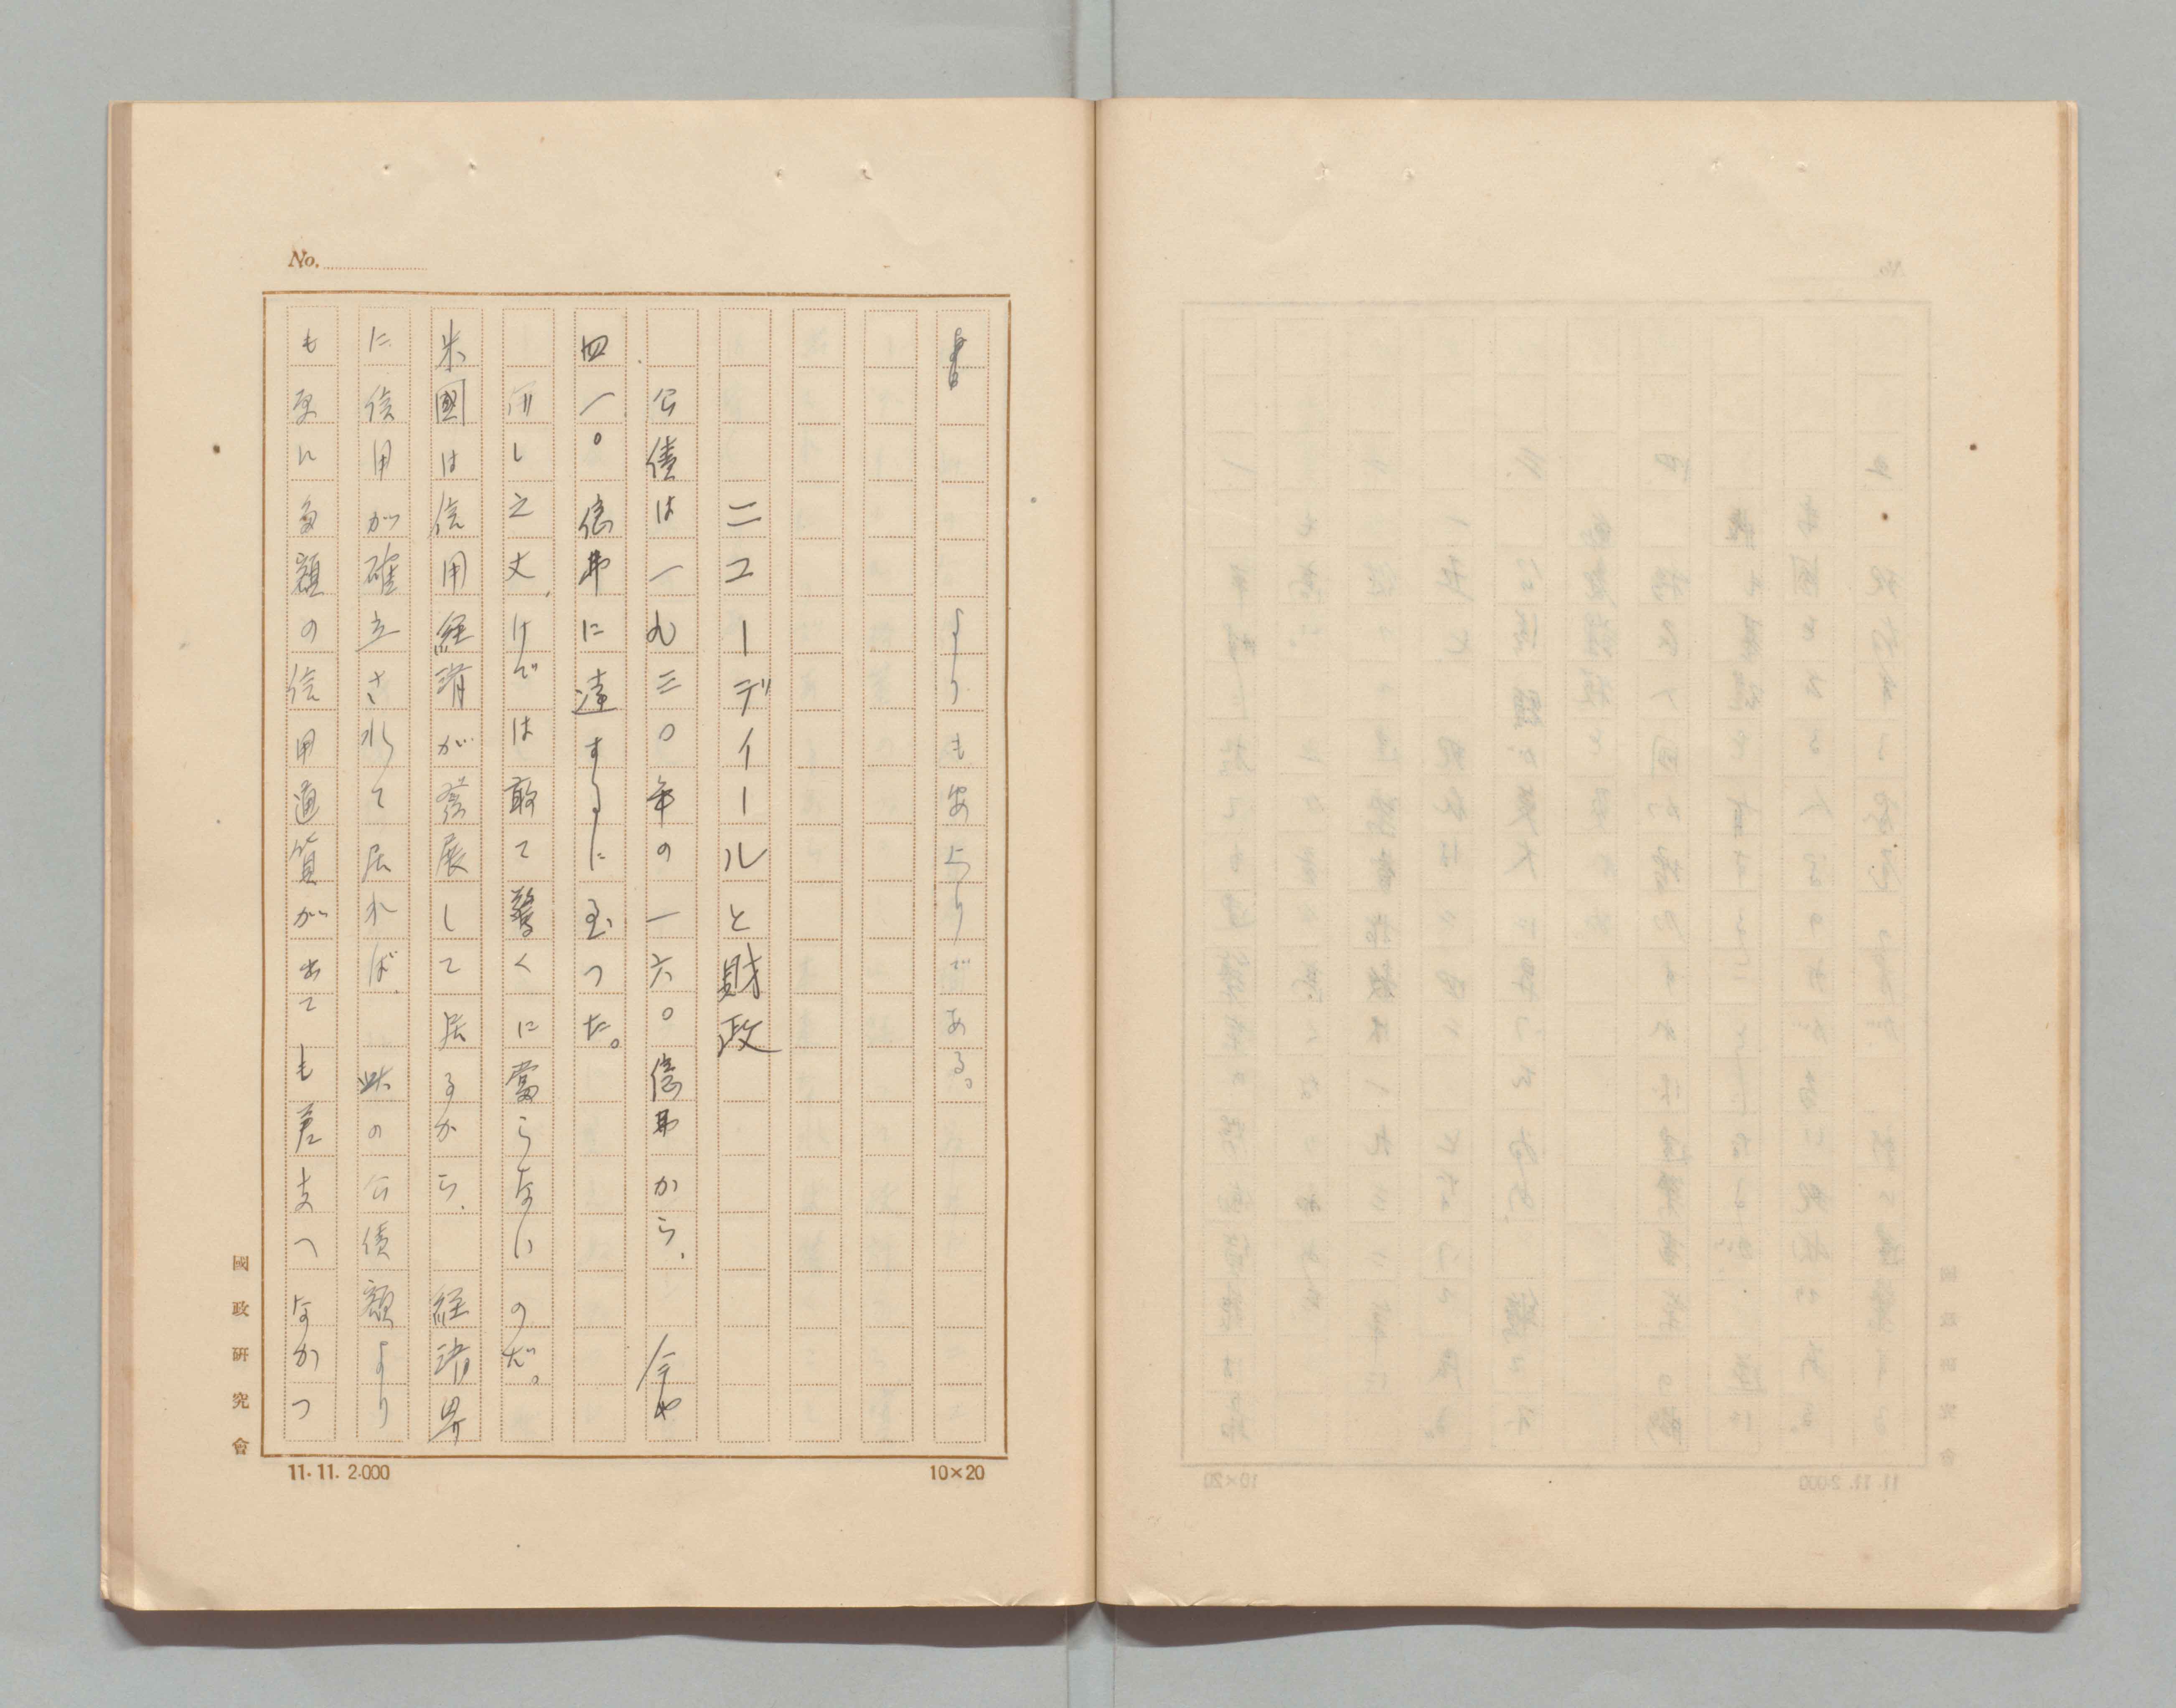 よりも安上りである。
ニユーデイールと財政
公債は一九三〇年の一六〇億弗から、今や
四一〇億弗に達するに至つた。
併し之丈けでは敢て驚くに當らないのだ。
米國は信用経済が発展して居るから、経済界
に信用が確立されて居れば、此の公債額より
も更に多額の信用通貨があても差支へなかつ
No.
國政研究會
11.11.2.000
10×20